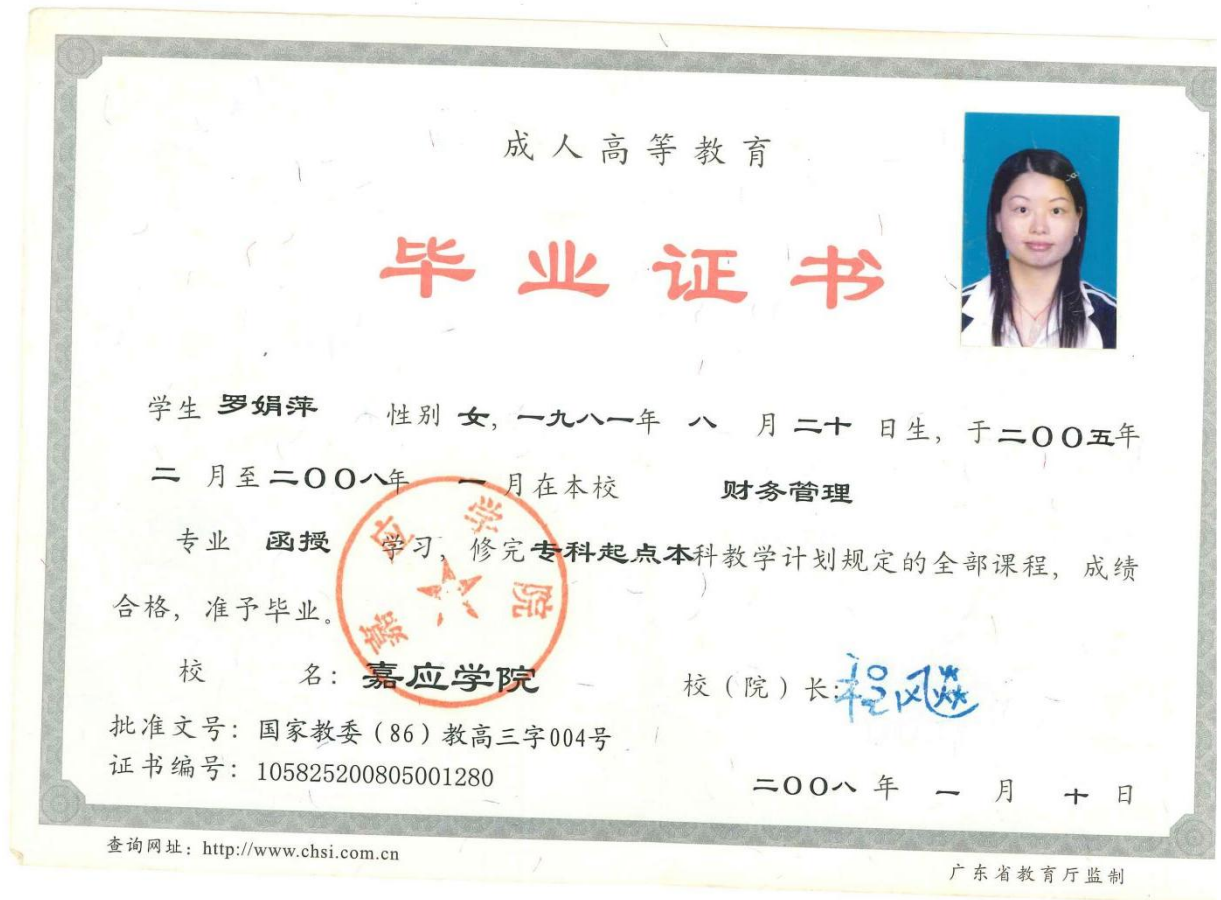 成人高等教育
毕业证书
学生 罗娟萍 性别 女, 一九八一年 八 月 二十 日生, 于二〇〇五年
二 月至二〇〇八年 一 月在本校 财务管理
专业 函授 学习, 修完专科起点本科教学计划规定的全部课程, 成绩
合格, 准予毕业。
嘉应学院
校 名: 嘉应学院 校(院)长: 程飚
批准文号: 国家教委(86)教高三字004号
证书编号: 105825200805001280
二〇〇八 年 一 月 十 日
查询网址: http://www.chsi.com.cn
广东省教育厅监制